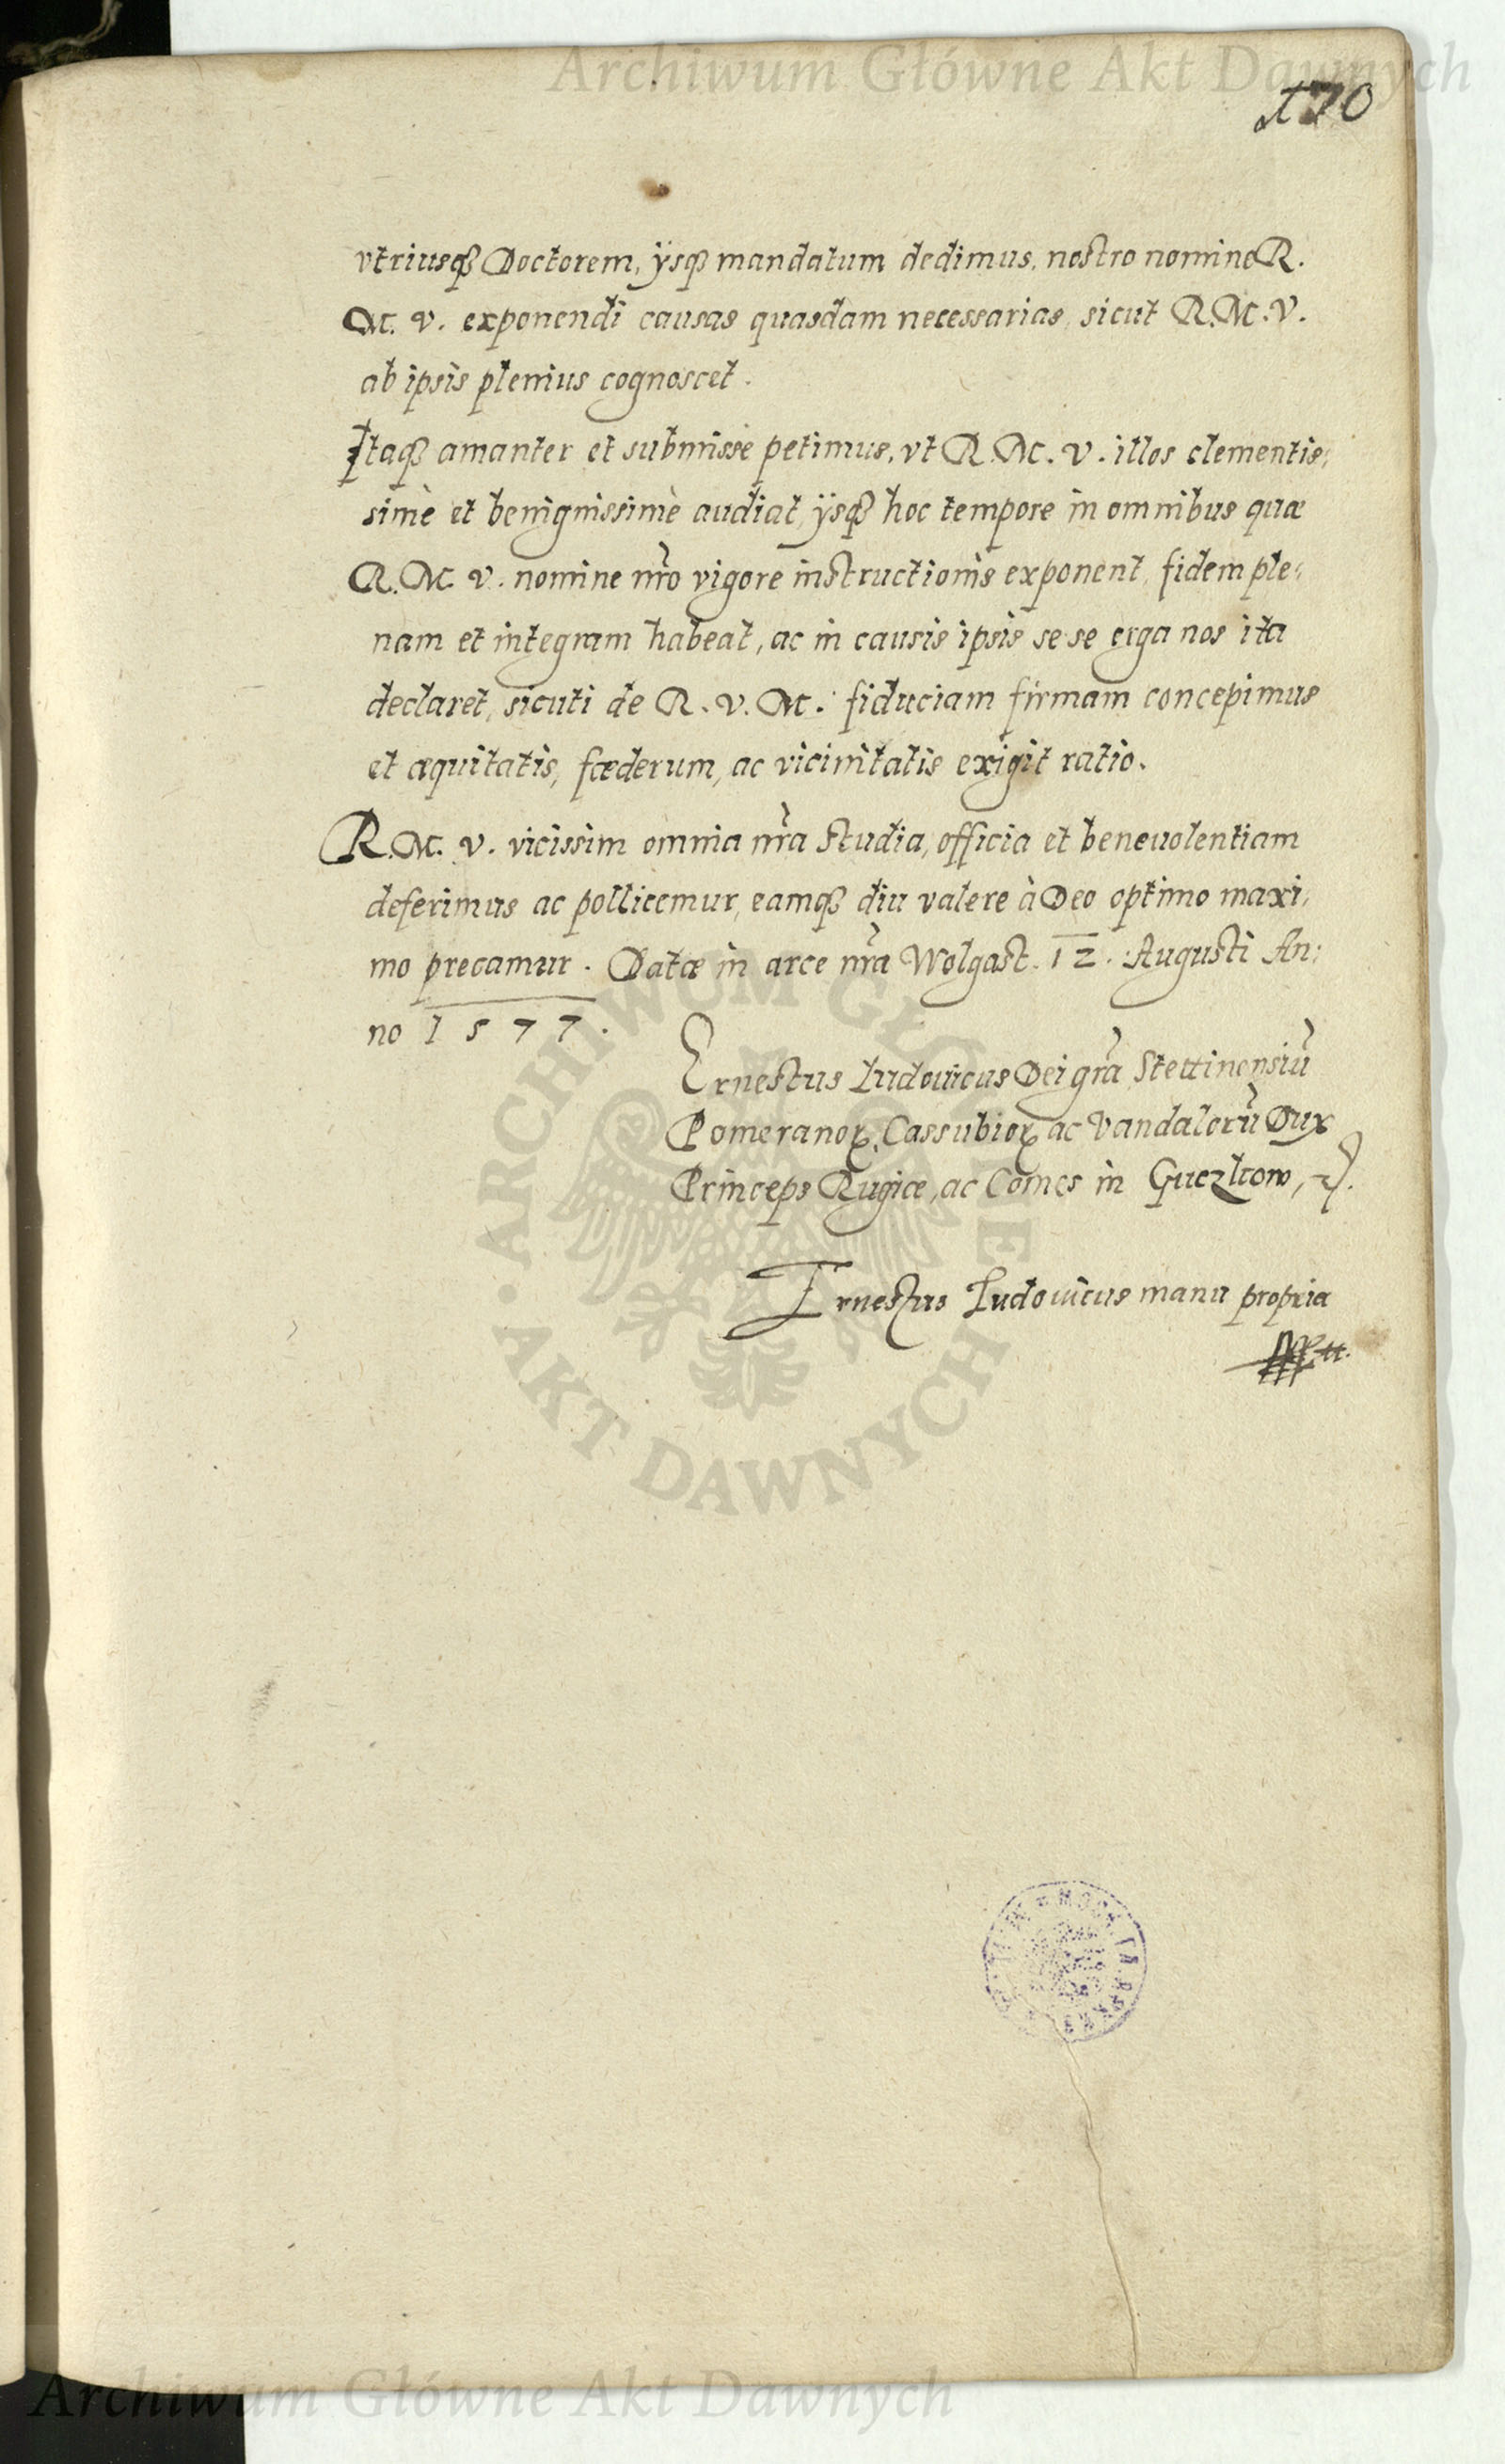 Archiwum Główne Akt Dawnych
170
vtriusqȝ Doctorem, ÿsqȝ mandatum dedimus, nostro nomine R.
M. V. exponendi causas quasdam necessarias, sicut R.M.V.
ab ipsis plenius cognoscet.
Itaqȝ amanter et submissè petimus, vt R.M.V. illos clementis:
simè et benignissimè audiat, ÿsqȝ hoc tempore in omnibus quæ
R.M V. nomine nr̃o vigore instructionis exponent, fidem ple:
nam et integram habeat, ac in causis ipsis se se erga nos ita
declaret, sicuti de R.V.M. fiduciam firmam concepimus
et æquitatis, fœderum, ac vicinitatis exigit ratio.
R.M. V. vicissim omnia nr̃a studia, officia et beneuolentiam
deferimus ac pollicemur, eamqȝ diu valere à Deo optimo maxi:
mo precamur. Datæ in arce nr̃a Wolgast. 12. Augusti An:
no 1577.
Ernestus Ludouicus Dei gr̃a Stettinensiũ
Pomeranoꝝ, Cassubioꝝ ac Vandalorũ Dux
Princeps Rugiæ, ac Comes in Guezkow, ꝛc.
Ernestus Ludouicus manu propria
ARCHIWUM GŁÓWNE
AKT DAWNYCH
Archiwum Główne Akt Dawnych